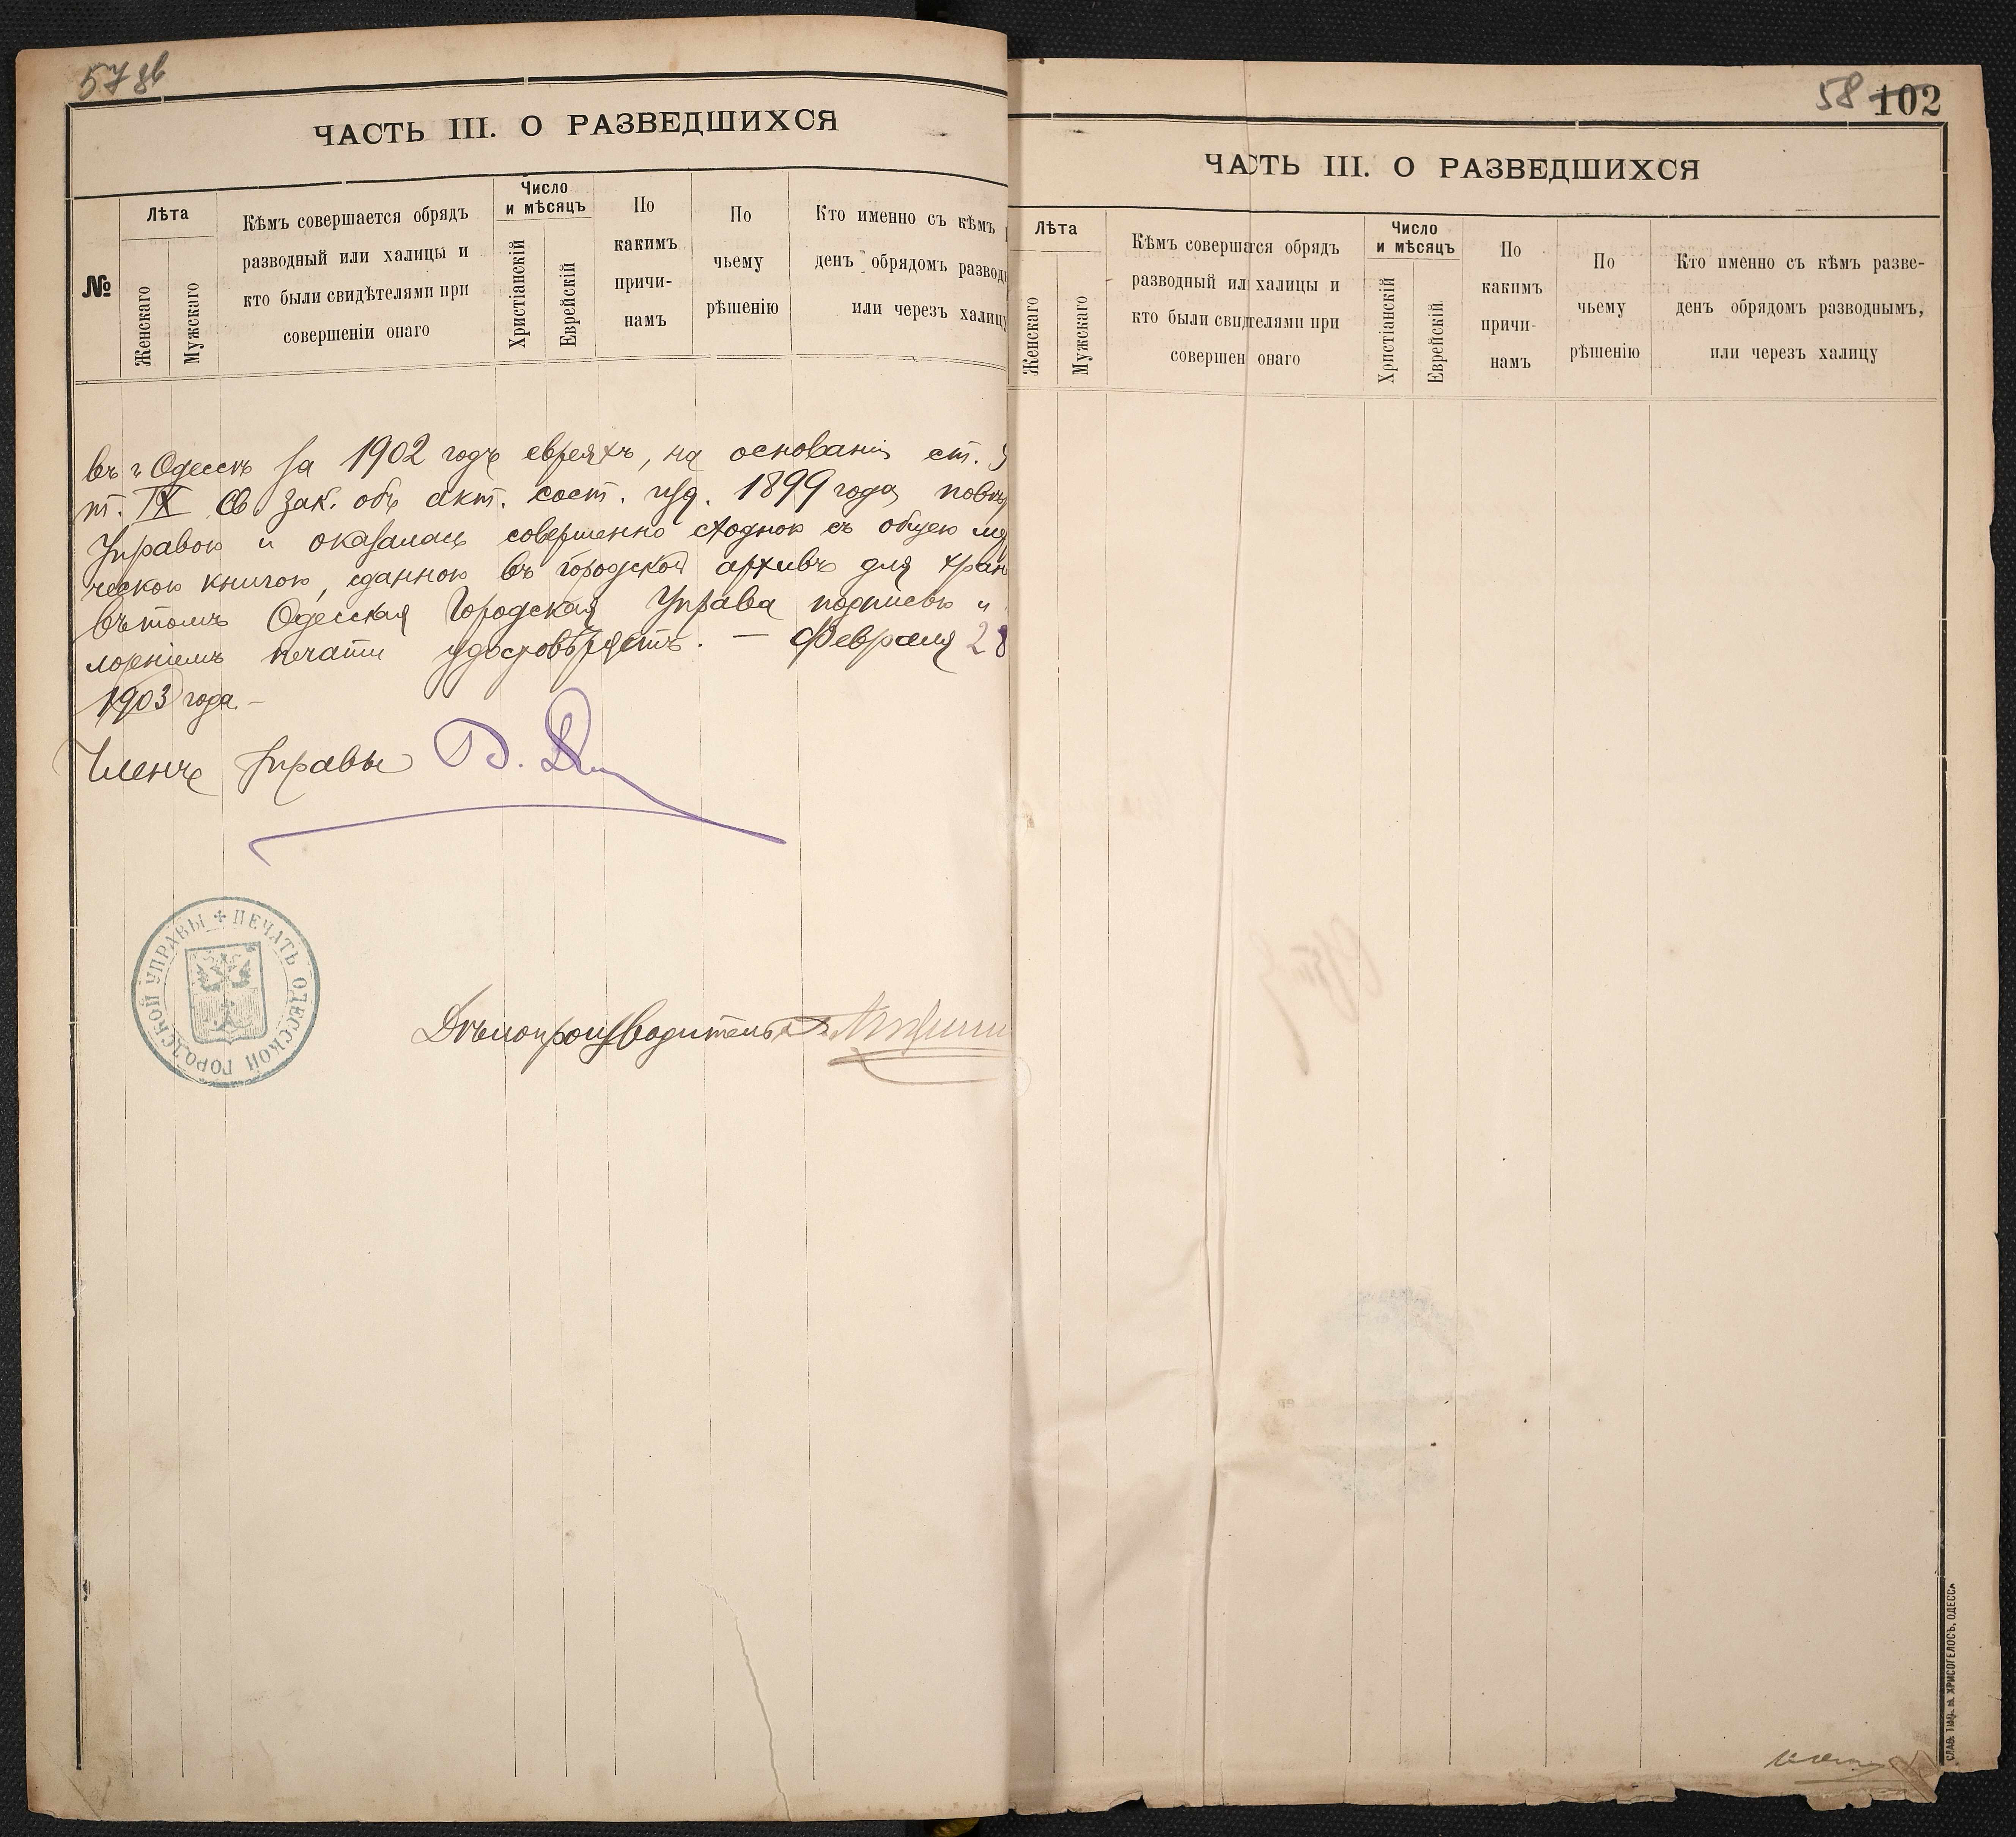 57 зв
ЧАСТЬ III. О РАЗВЕДШИХСЯ
№
Лѣта
Женскаго
Мужскаго
Кѣмъ совершается обрядъ
разводный или халицы и
кто были свидѣтелями при
совершеніи онаго
Число
и мѣсяцъ
Христіанскій
Еврейскій
По
какимъ
причи-
намъ
По
чьему
рѣшенію
Кто именно съ кѣмъ
денъ обрядомъ развод
или черезъ халицу
въ г Одессѣ за 1902 годъ евреяхъ, на основаніи ст.
т. IX Св Зак. объ акт. сост. изд. 1899 года, повѣ
Управою и оказалась совершенно сходною съ общею ме
ческою книгою, сданною въ городской архивъ для хран
въ томъ Одесская Городская Управа подписью и
ложеніемъ печати удостовѣряетъ. — Февраля 28
1903 года. —
Членъ Управы
ПЕЧАТЬ ОДЕССКОЙ ГОРОДСКОЙ УПРАВЫ
Дѣлопроизводитель
58 102
ЧАСТЬ III. О РАЗВЕДШИХСЯ
Лѣта
Женскаго
Мужскаго
Кѣмъ соверша тся обрядъ
разводный ил халицы и
кто были свид телями при
совершен онаго
Число
и мѣсяцъ
Христіанскій
Еврейскій
По
какимъ
причи-
намъ
По
чьему
рѣшенію
Кто именно съ кѣмъ разве-
денъ обрядомъ разводнымъ,
или черезъ халицу
СЛАВ. ТИП. М. ХРИСОГЕЛОСЪ, ОДЕССА